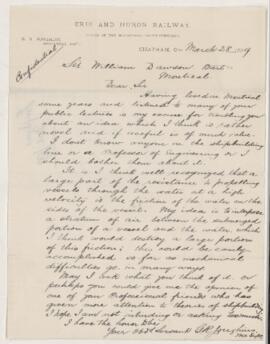 ERIE AND HURON RAILWAY.
CHATHAM, ONT. March 28, 1889
Confidential
Sir William Dawson Bart
Montreal
Dear Sir
Having lived in Montreal
some years and listened to many of your
public lectures is my excuse for troubling you
about an idea which I think is rather
novel and if useful is of much value.
I don't know anyone in the shipbuilding
line or a Professor of Engineering or I
should bother them about it.
It is I think well recognized that a
large part of the resistance to propelling
vessels through the water at a high
velocity is the friction of the water on the
sides of the vessel. My idea is to interpose
a stratum of air between the submerged
portion of a vessel and the water, which
I think would destroy a large portion
of this friction; this could be easily
accomplished so far as mechanical
difficulties go in many ways
May I ask what you think of it, or
perhaps you could give me the opinion of
one of your Professional friends who has
given more attention to theories of shipbuilding
I hope I am not intruding or asking too much
I have the honor to be
Your obdt Servant